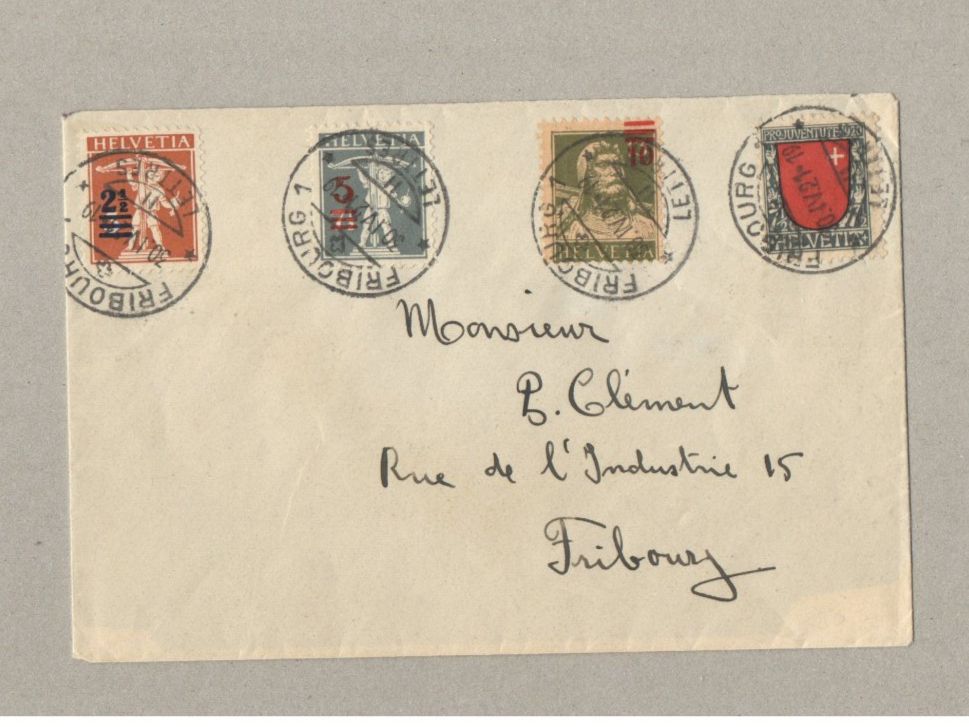 HELVETIA
2½
HELVETIA
5
10
HELVETIA
PRO JUVENTUTE 1920
HELVETIA
FRIBOURG 1
FRIBOURG 1
FRIBOURG 1
FRIBOURG
Monsieur
P. Clément
Rue de l'Industrie 15
Fribourg